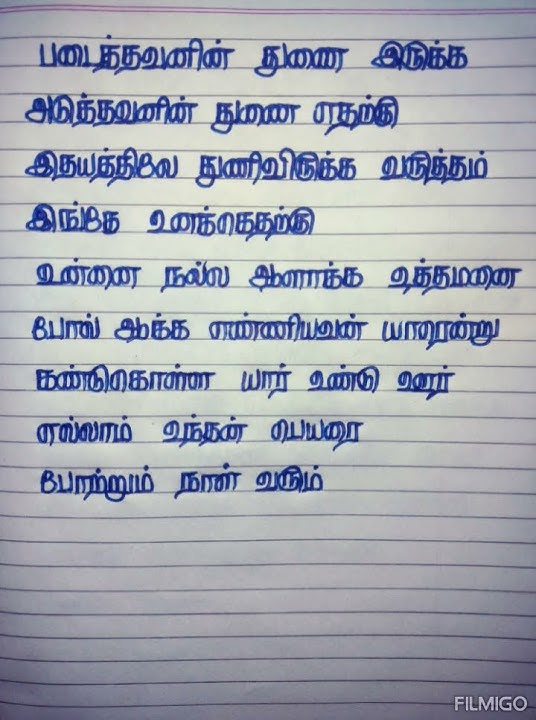 படைத்தவனின் துணை இருக்க
அடுத்தவனின் துணை எதற்கு
இதயத்திலே துணிவிருக்க வருத்தம்
இங்கே உனக்கெதற்கு
உன்னை நல்ல ஆளாக்க உத்தமனை
போல் ஆக்க எண்ணியவன் யாரென்று
கண்டுகொள்ள யார் உண்டு ஊர்
எல்லாம் உந்தன் பெயரை
போற்றும் நாள் வரும்
FILMIGO